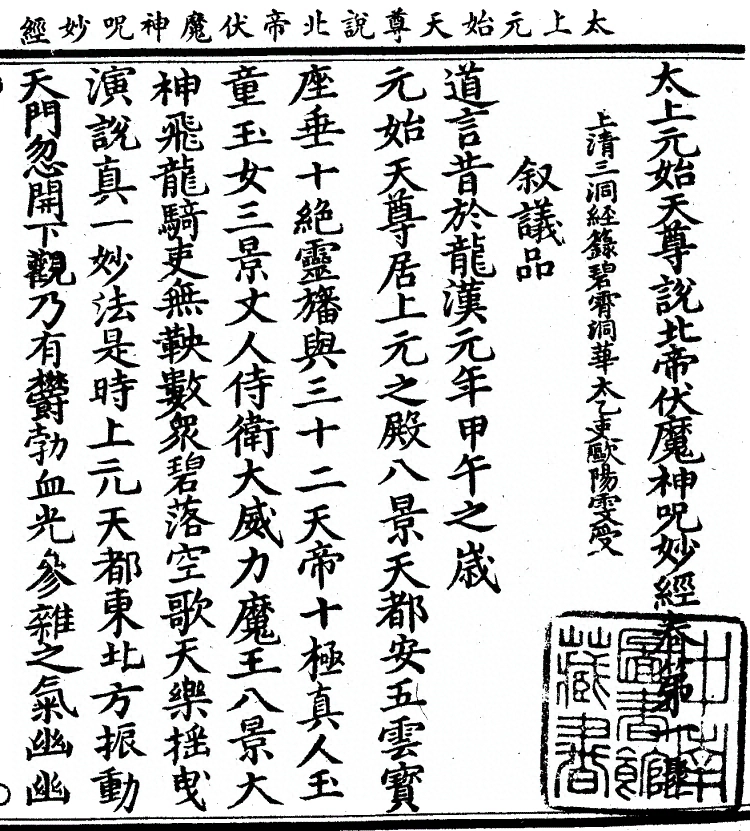 太上元始天尊說北帝伏魔神呪妙經
太上元始天尊說北帝伏魔神呪妙經卷第一
上清三洞經籙碧霄洞華太乙吏歐陽雯受
叙議品
道言昔於龍漢元年甲午之歲
元始天尊居上元之殿八景天都安五雲寶
座垂十絕靈旛與三十二天帝十極真人玉
童玉女三景丈人侍衛大威力魔王八景大
神飛龍騎吏無鞅數眾碧落空歌天樂揺曳
演說真一妙法是時上元天都東北方振動
天門忽開下觀乃有欝勃血光參雜之氣幽幽
圖書館
藏書